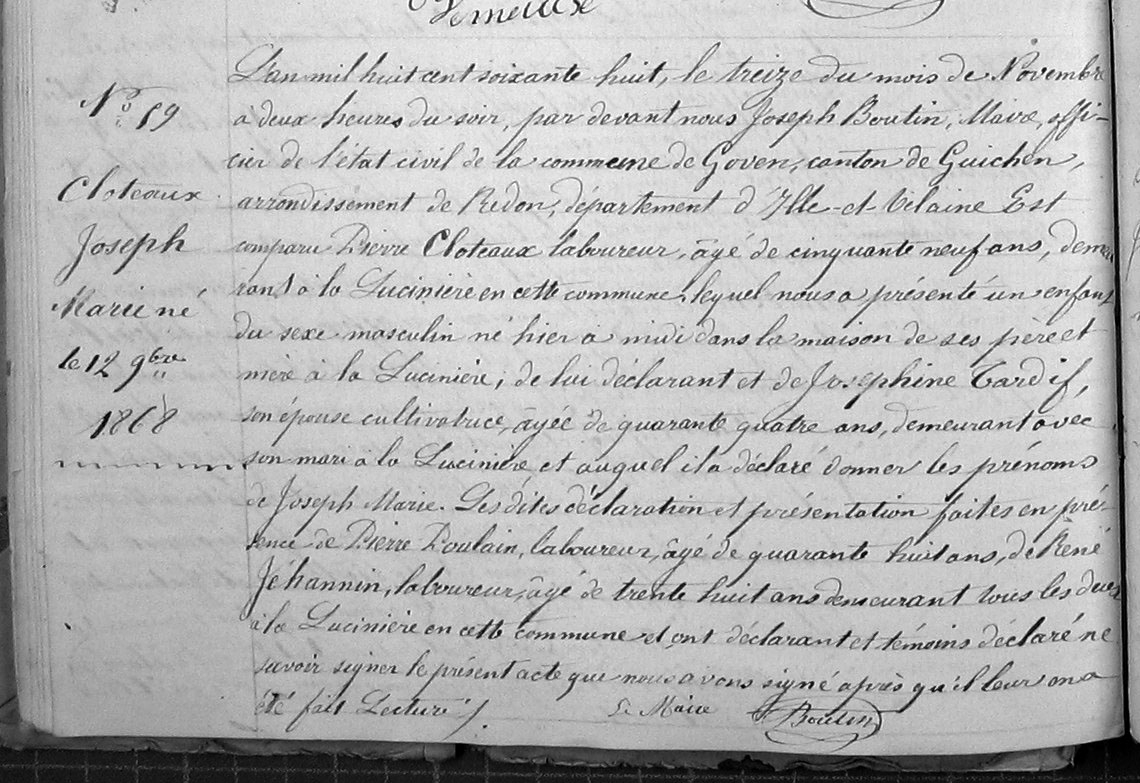 Lemeilux
No 59
Cloteaux
Joseph
Marie né
le 12 9bre
1868
L'an mil huit cent soixante huit, le treize du mois de Novembre
a deux heures du soir, par devant nous Joseph Boutin, Maire, offi-
cier de l'état civil de la commune de Goven, canton de Guichen,
arrondissement de Redon, département d'Ille-et-Vilaine Est
comparu Pierre Cloteaux laboureur, âgé de cinquante neuf ans, demeu
rant à la Lucinière en cette commune, lequel nous a présenté un enfant
du sexe masculin né hier à midi dans la maison de ses père et
mère à la Lucinière, de lui déclarant et de Joséphine Tardif,
son épouse cultivatrice, âgée de quarante quatre ans, demeurant avec
son mari à la Lucinière et auquel il a déclaré donner les prénoms
de Joseph Marie. Les dites déclaration et présentation faites en pré-
sence de Pierre Poulain, laboureur, âgé de quarante huit ans, de René
Jéhannin, laboureur, âgé de trente huit ans demeurant tous les deux
à la Lucinière en cette commune et ont déclarant et témoins déclaré ne
savoir signer le présent acte que nous avons signé après qu'il leur en a
été fait Lecture /.
Le Maire
Boutin